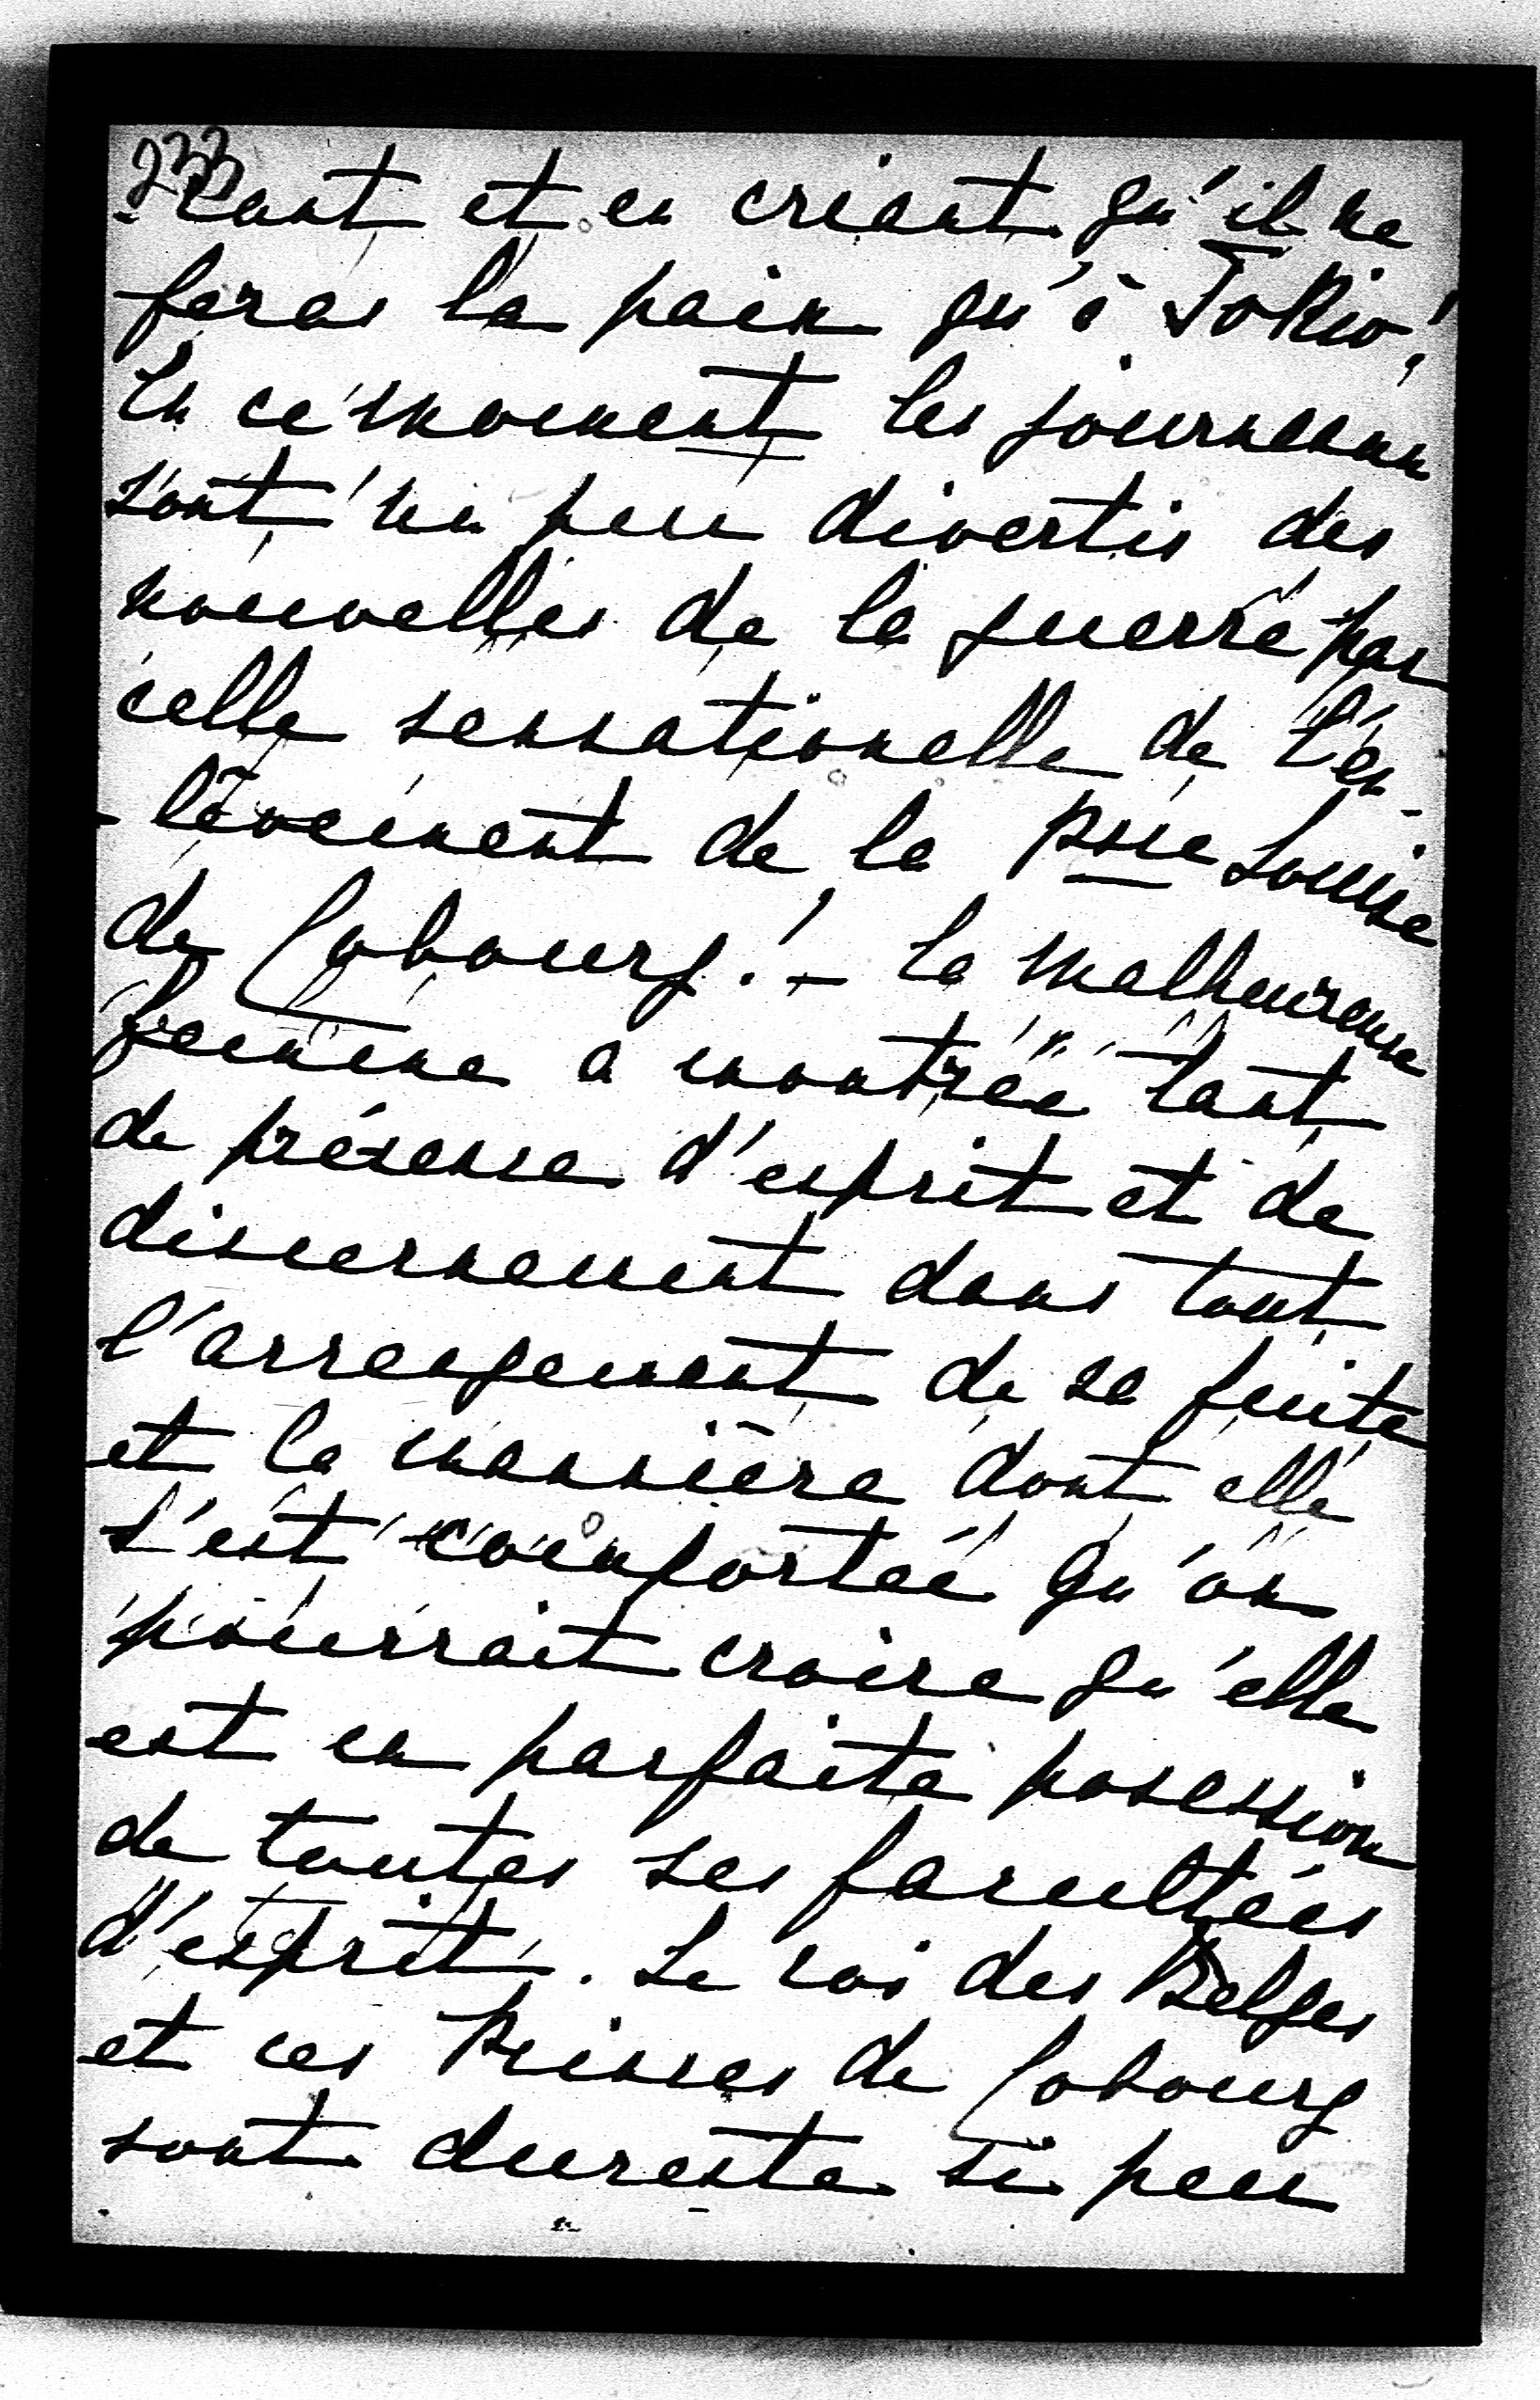 233
-cant et en criant qu'il ne
feras la paix qu'à Tokio!
En ce moment les journeaux
sont un peu divertis des
nouvelles de la guerre par
celle sensationelle de l'en-
-lèvement de la Psse Louise
de Cobourg! - La malheureuse
femme a montrée tant
de présence d'esprit et de
discernement dans tout
l'arrengement de sa fuite
et la mannière dont elle
s'est comportée qu'on
pourrait croire qu'elle
est en parfaite posession
de toutes ses facultées
d'esprit. Le roi des Belges
et ces Princes de Cobourg
sont dureste si peu